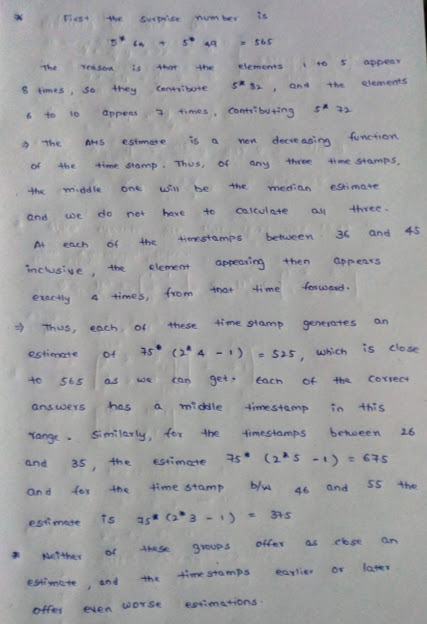 * First the surprise number is
5* 64 + 5* 49 = 565
The reason is that the elements 1 to 5 appear
8 times, so they contribute 5* 82, and the elements
6 to 10 appears 7 times, contributing 5* 72
⇒ The AMS estimate is a non decreasing function
of the time stamp. Thus, of any three time stamps,
the middle one will be the median estimate
and we do not have to calculate all three.
At each of the timestamps between 36 and 45
inclusive, the element appearing then appears
exactly 4 times, from that time forward.
⇒ Thus, each of these time stamp generates an
estimate of 75* (2*4 - 1) = 525, which is close
to 565 as we can get. Each of the correct
answers has a middle timestamp in this
range. Similarly, for the timestamps between 26
and 35, the estimate 75* (2*5 - 1) = 675
and for the time stamp b/w 46 and 55 the
estimate is 75* (2*3 - 1) = 375
* Neither of these groups offer as close an
estimate, and the timestamps earlier or later
offer even worse estimations.